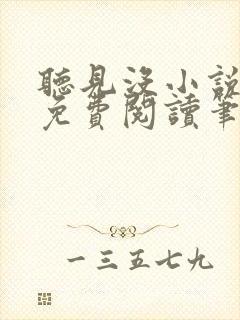 聽見沒小說
免費閱讀筆
一三五七九